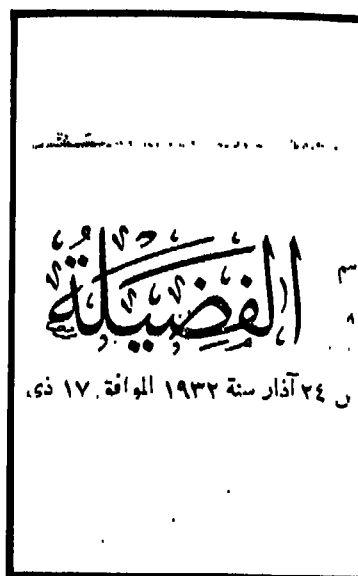 الفضيلة
٢٤ آذار سنة ١٩٣٢ الموافق ١٧ ذى